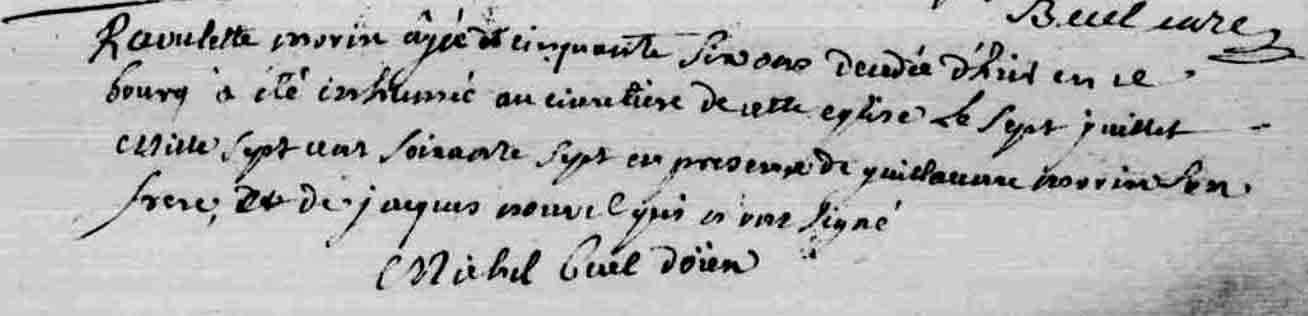 Beul curé
Raoulette morin âgée de cinquante six ans decedée d'hier en ce
bourg a été inhumée au cimetiere de cette eglise le sept juillet
Mille sept cent soixante sept en presence de guillaume morin son
frere, et de jaques nouvel qui n'ont signé
Michel beul doïen